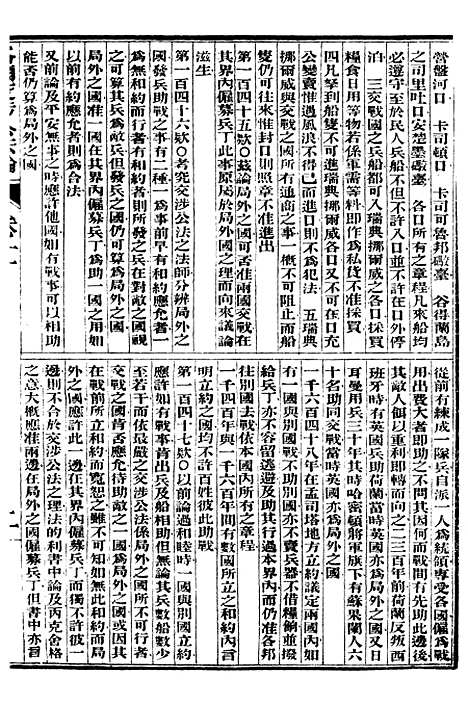 營盤河口　卡司頓口　卡司可魯邦礮臺　谷得蘭島
之司里吐口安楚墨礮臺　各口所有之章程凡來船均
必遵守至於民人兵船不但不許入口以外停
泊　三交戰之國兵船都可入瑞典挪爾威之各口採買
糧食日用等物若係軍需等料即作為私貨不准採買
四凡拏到船隻不可進瑞典挪爾威各口又不可在口充
公變賣惟遇風浪不得已而進口則不為犯法　五瑞典
挪爾威與交戰之國所有通商之事一概不可阻止而船
隻仍可往來惟封口則照章不准進出
第一百四十五欵〇茲論局外之國可否准兩國交戰在
其界內僱募兵丁此事原屬於局外國之理而向來議論
滋生
第一百四十六欵〇考究交涉公法之法師分辨局外之
國發兵助戰之事有二種一為事前早有和約應允者一
為無和約而行者有和約者則所發之兵在對敵之國視
之可算其兵為敵兵但發兵之國仍可算為局外之國又
局外之國准一國在其界內僱募兵丁為助一國之用如
以前有約應允者則為合法
又前論及平安無事之時應許他國如有戰事可以相助
能否仍算為局外之國
從前有練成一隊兵自派一人為統領專受各國僱為戰
用出費大者即助之不問其因何而戰間有先助此邊後
其敵人餌以重利即轉而向之二三百年前荷蘭反叛西
班牙時有英國兵助荷蘭當時英國亦為局外之國又日
耳曼用兵三十年其時哈密頓將軍旗下有蘇果蘭人六
十名助同交戰當時英國亦為局外之國
一千六百四十八年在孟司塔地方立約議定兩國內如
有一國與別國戰則不可助別國亦不賣兵器不借糧餉並撥
給兵丁亦不容留逃避及助其行過本界內而仍准各邦
往別國去投軍惟必依本國所有之章程
一千四百年與一千六百年間有數國所立之和約內言
明立約之國均不許百姓彼此助戰
第一百四十七欵〇以前論過和睦時一國與別國立約
應許如有戰事肯出兵及船相助無論其兵數船數少
至若干而依最嚴之交涉公法係局外之國所不可行者
交戰之國肯否應允待助敵之一國為局外之國或因其
在戰前所立和約而寬恕之雖不可知如無此和約而局
外之國應許此一邊在其界內僱募兵丁而獨不許彼一
邊則不合於交涉公法之理法的利書中論及丙克舍格
之意大概應准兩邊在局外之國僱募兵丁但書中亦言